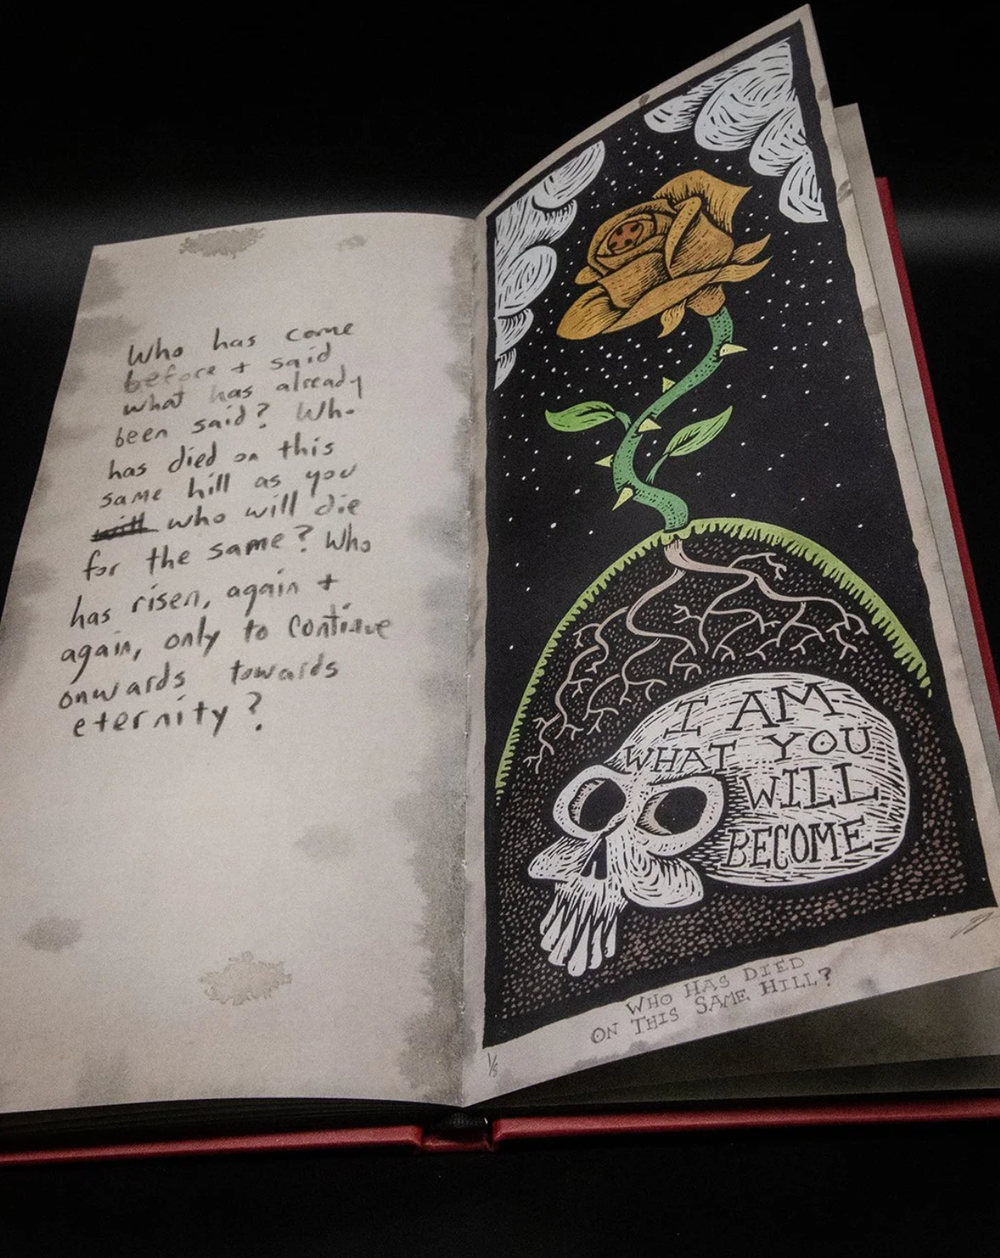 Who has come
before + said
what has already
been said? Who
has died on this
same hill as you
will who will die
for the same? Who
has risen, again +
again, only to continue
onwards towards
eternity?
I AM
WHAT YOU
WILL
BECOME
WHO HAS DIED
ON THIS SAME HILL?
1/5